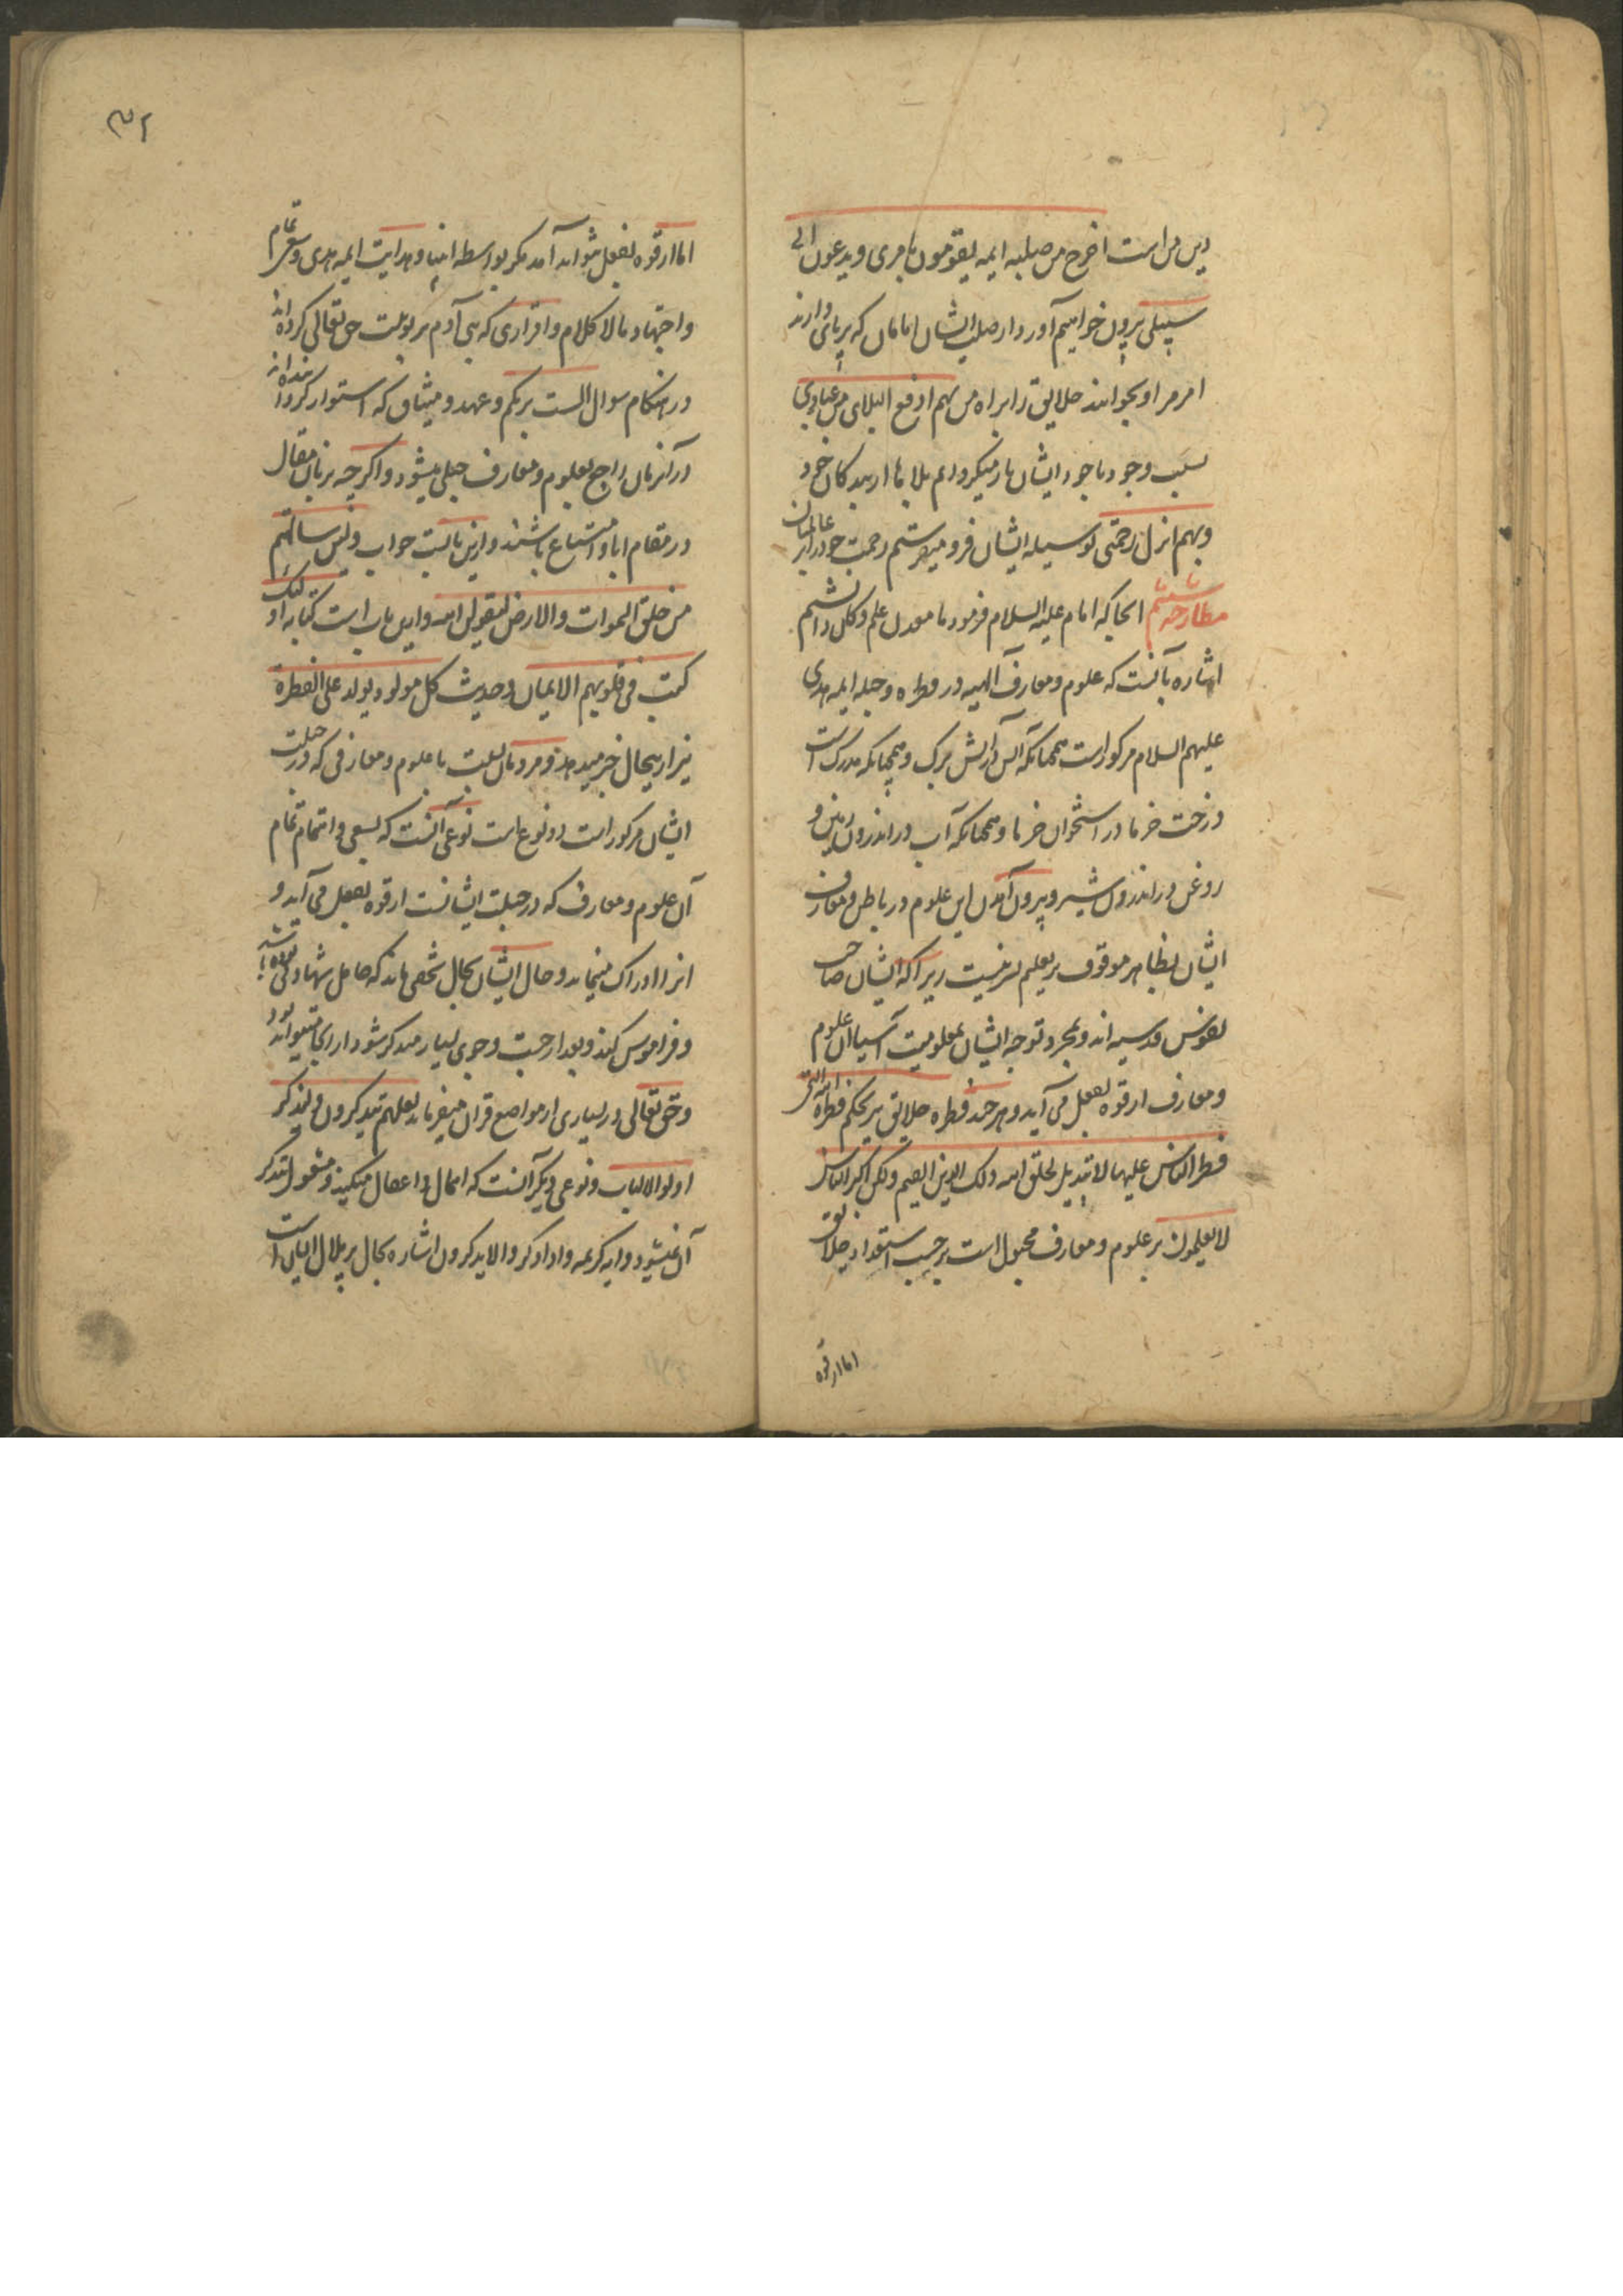 دین من است اخرج من صلبه ایمه یقومون بامری ویدعون الی
سبیلی بیرون خواهیم آورد از صلب ایشان امامان که برپای دارند
امر مرا و بخوانند خلایق را براه من بهم ادفع البلای من عبادی
بسبب وجود باجود ایشان باز میگردانم بلاها از بندکان خود
وبهم انزل رحمتی بوسیله ایشان فرو میفرستم رحمت خود را بر عالمیان
مطارحه ششم انجا که امام علیه السلام فرمود ما معدن علم و کان دانشیم
اشاره بآنست که علوم ومعارف آلهیه در فطره وجبله ایمه هدی
علیهم السلام مرکوز است همچنانکه آتش در آتش برک وهمچنانکه مدرک است
درخت خرما در استخوان خرما وهمچنانکه آب در اندرون زمین و
روغن در اندرون شیر وبیرون آمدن این علوم در باطن ومعارف
ایشان بظاهر موقوف بر تعلیم بشر نیست زیرا که ایشان صاحب
نفوس قدسیه اند وبمجرد توجه ایشان بمعلومیت اشیا آن علوم
ومعارف از قوه بفعل می آید وهرچند فطره خلایق نیز بحکم فطرة الله التی
فطر الناس علیها لا تبدیل لخلق الله ذلک الدین القیم ولکن اکثر الناس
لا یعلمون بر علوم ومعارف مجبول است بر حسب استعداد خلایق
اما از قوه
۳۲
اما از قوه بفعل نتواند آمد مکر بواسطه انبیا وهدایت ایمه هدی وسعی تمام
واجتهاد مالا کلام واقراری که بنی آدم بربوبیت حق تعالی کرده اند
در هنکام سوال الست بربکم وعهد ومیثاق که استوار کرده اند
در آنزمان راجع بعلوم ومعارف جبلی میشود واکرچه بزبان مقال
در مقام ابا وامتناع باشند وازین بابست جواب ولئن سالتهم
من خلق السموات والارض لیقولن الله وازین باب است کتابه اولئک
کتب فی قلوبهم الایمان وحدیث کل مولود یولد علی الفطرة
نیز ازین حال خبر میدهد ومردمان نسبت با علوم ومعارفی که در جبلت
ایشان مرکوز است دو نوع است نوعی آنست که بسعی واهتمام تمام
آن علوم ومعارف که در جبلت ایشانست از قوه بفعل می آید و
انرا ادراک مینماید وحال ایشان بحال شخصی ماند که حامل شهادتی بوده باشد
وفراموش کند وبعد از جست وجوی بسیار متذکر شود
وحق تعالی در بسیاری از مواضع قران میفرماید لعلهم یتذکرون ولیتذکر
اولوا الالباب ونوعی دیکر آنست که اهمال واغفال میکنند ومشغول تذکر
آن نمیشود وآیه کریمه واذا ذکروا لا یذکرون اشاره بحال